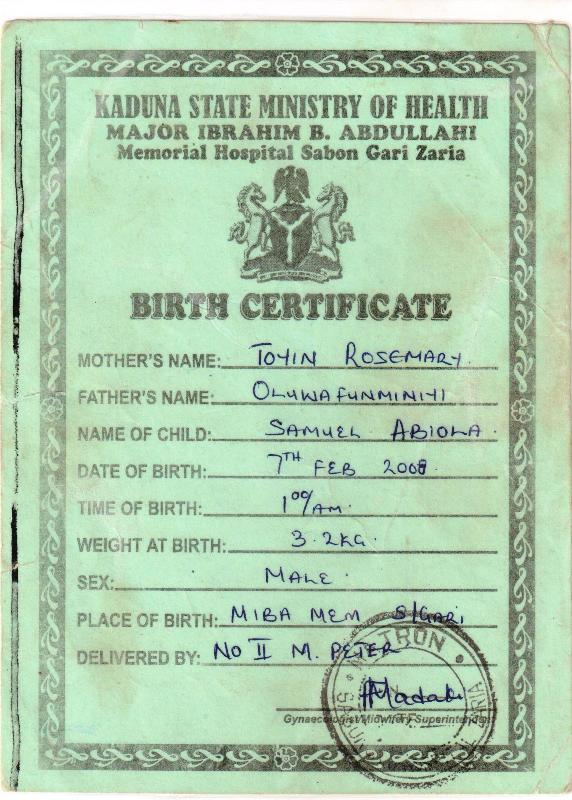 KADUNA STATE MINISTRY OF HEALTH
MAJOR IBRAHIM B. ABDULLAHI
Memorial Hospital Sabon Gari Zaria
BIRTH CERTIFICATE
MOTHER'S NAME: TOYIN ROSEMARY
FATHER'S NAME: OLUWAFUNMINIYI
NAME OF CHILD: SAMUEL ABIOLA
DATE OF BIRTH: 7TH FEB 2008
TIME OF BIRTH: 1 00/AM.
WEIGHT AT BIRTH: 3.2KG.
SEX: MALE
PLACE OF BIRTH: MIBA MEM S/GARI
DELIVERED BY: NO II M. PETER
Gynaecologist/Midwifery Superintendent